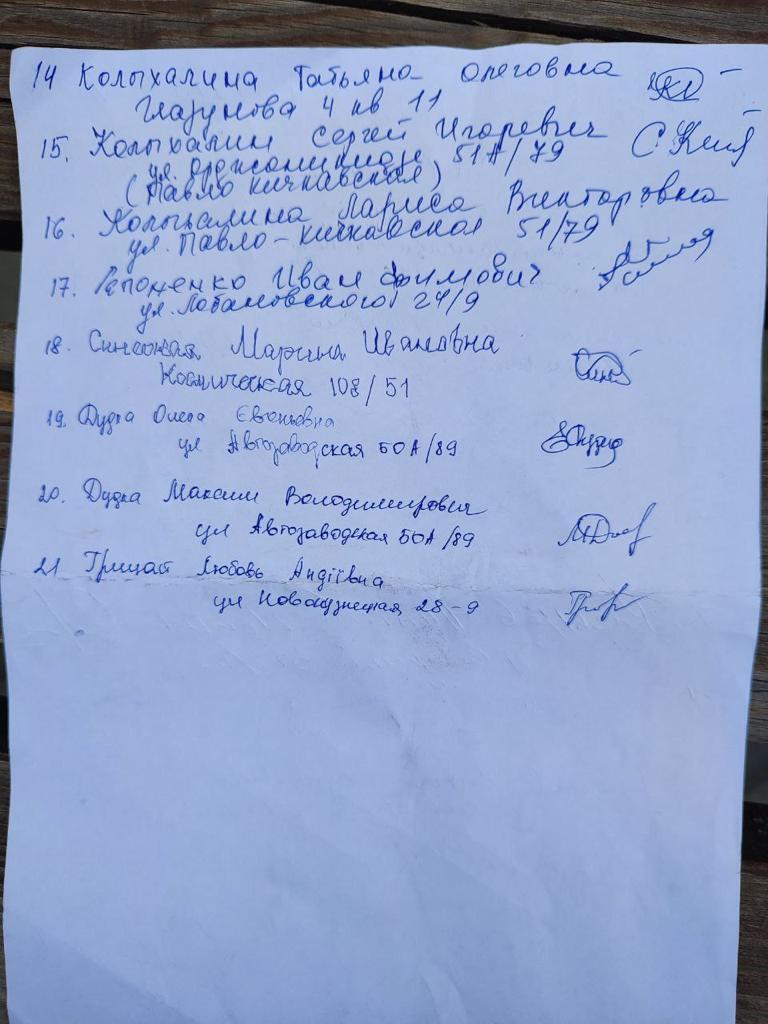 14 Колыхалина Татьяна Олеговна
Глазунова 4 кв 11
15. Колыхалин Сергей Игоревич
ул. Орджоникидзе 51А/79
(Павло кичкавская)
16. Колыхалина Лариса Викторовна
ул. Павло-кичкавская 51/79
17. Иван
ул. Лобановского 24/9
18. Марина Ивановна
Космическая 108/51
19. Дудка Олега Євгеньевна
ул Автозаводская 50А/89
20. Дудка Максим Володимирович
ул Автозаводская 50А/89
21 Грицай Любовь Андіївна
ул Новокузнецкая 28-9